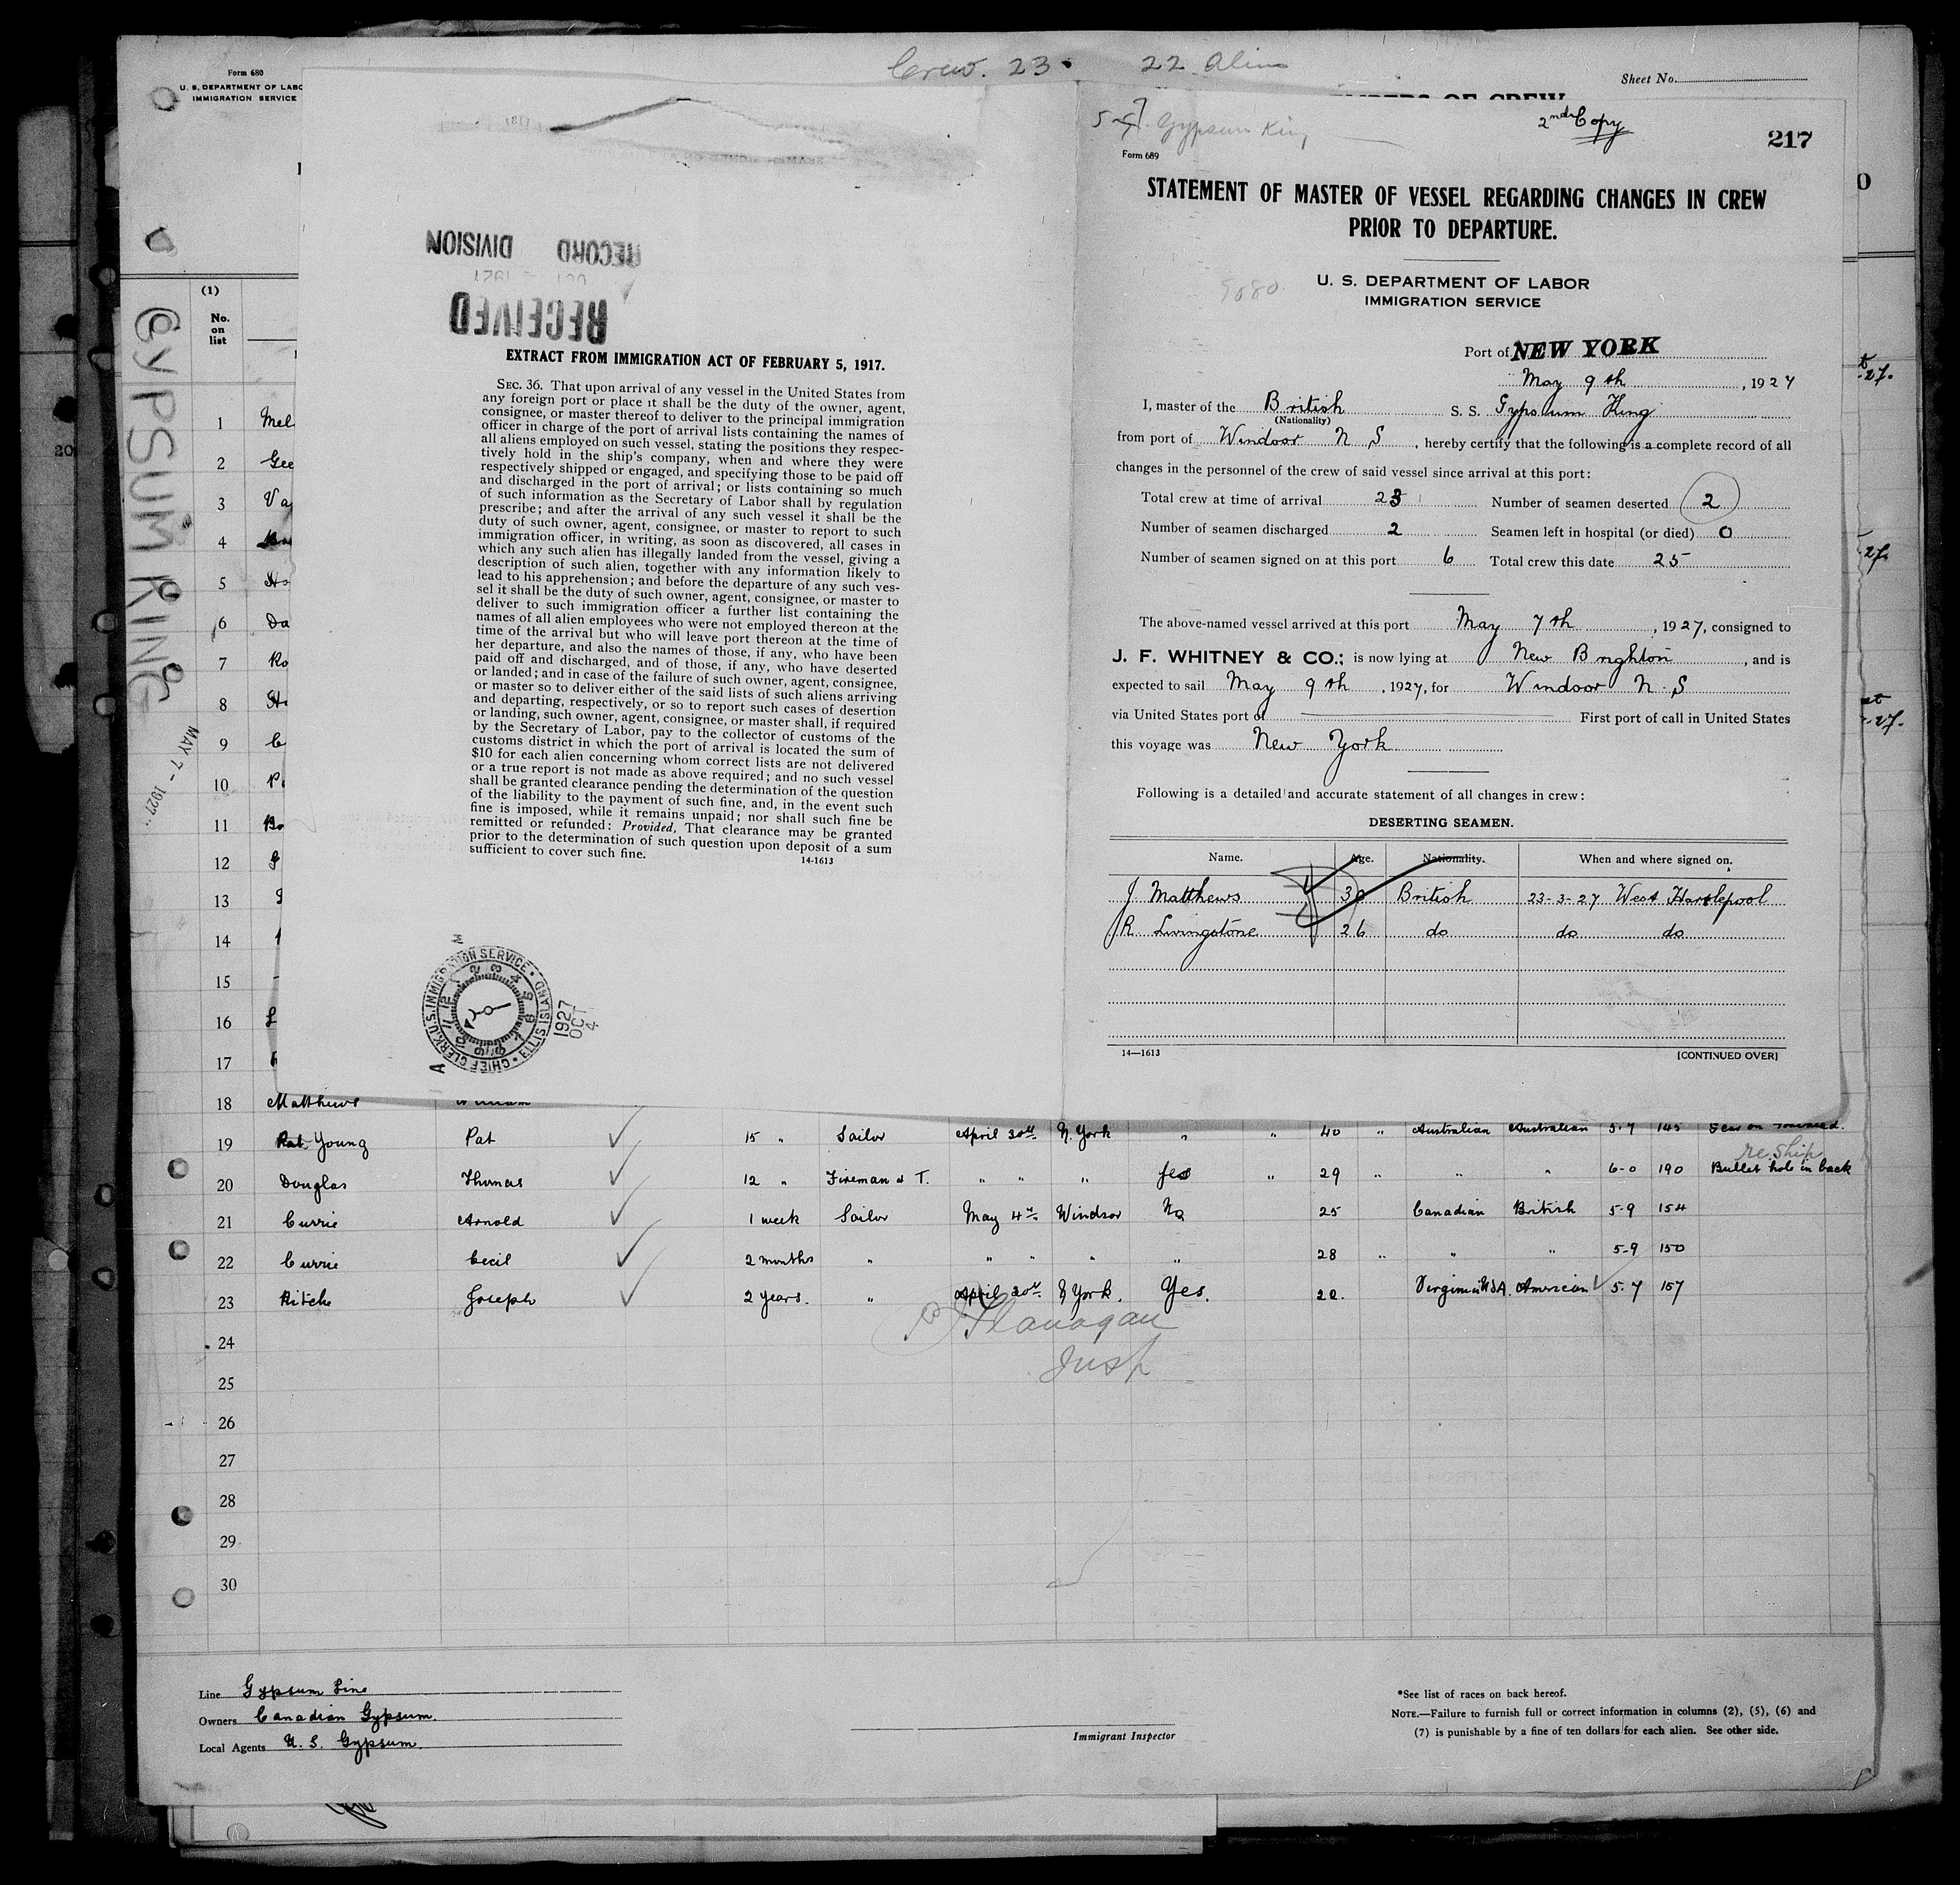 Crew. 23 22 Alien
Form 680
U. S. DEPARTMENT OF LABO
IMMIGRATION SERVICE
Sheet No.
(1)
No.
on
list
GYPSUM KING
MAY 7 - 1927
RECORD DIVISION
RECEIVED
EXTRACT FROM IMMIGRATION ACT OF FEBRUARY 5, 1917.
SEC. 36. That upon arrival of any vessel in the United States from
any foreign port or place it shall be the duty of the owner, agent,
consignee, or master thereof to deliver to the principal immigration
officer in charge of the port of arrival lists containing the names of
all aliens employed on such vessel, stating the positions they respec-
tively hold in the ship's company, when and where they were
respectively shipped or engaged, and specifying those to be paid off
and discharged in the port of arrival; or lists containing so much
of such information as the Secretary of Labor shall by regulation
prescribe; and after the arrival of any such vessel it shall be the
duty of such owner, agent, consignee, or master to report to such
immigration officer, in writing, as soon as discovered, all cases in
which any such alien has illegally landed from the vessel, giving a
description of such alien, together with any information likely to
lead to his apprehension; and before the departure of any such ves-
sel it shall be the duty of such owner, agent, consignee, or master to
deliver to such immigration officer a further list containing the
names of all alien employees who were not employed thereon at the
time of the arrival but who will leave port thereon at the time of
her departure, and also the names of those, if any, who have been
paid off and discharged, and of those, if any, who have deserted
or landed; and in case of the failure of such owner, agent, consignee,
or master so to deliver either of the said lists of such aliens arriving
and departing, respectively, or so to report such cases of desertion
or landing, such owner, agent, consignee, or master shall, if required
by the Secretary of Labor, pay to the collector of customs of the
customs district in which the port of arrival is located the sum of
$10 for each alien concerning whom correct lists are not delivered
or a true report is not made as above required; and no such vessel
shall be granted clearance pending the determination of the question
of the liability to the payment of such fine, and, in the event such
fine is imposed, while it remains unpaid; nor shall such fine be
remitted or refunded: Provided, That clearance may be granted
prior to the determination of such question upon deposit of a sum
sufficient to cover such fine.
14-1613
CHIEF CLERK U.S. IMMIGRATION SERVICE · ELLIS ISLAND
1927
OCT
4
Gypsum King
2nd Copy
217
Form 689
STATEMENT OF MASTER OF VESSEL REGARDING CHANGES IN CREW
PRIOR TO DEPARTURE.
U. S. DEPARTMENT OF LABOR
IMMIGRATION SERVICE
Port of NEW YORK
May 9th, 1927
I, master of the British S. S. Gypsum King
(Nationality)
from port of Windsor N S, hereby certify that the following is a complete record of all
changes in the personnel of the crew of said vessel since arrival at this port:
Total crew at time of arrival 23 Number of seamen deserted 2
Number of seamen discharged 2 Seamen left in hospital (or died) 0
Number of seamen signed on at this port 6 Total crew this date 25
The above-named vessel arrived at this port May 7th, 1927, consigned to
J. F. WHITNEY & CO.; is now lying at New Brighton, and is
expected to sail May 9th, 1927, for Windsor N. S
via United States port of First port of call in United States
this voyage was New York
Following is a detailed and accurate statement of all changes in crew:
DESERTING SEAMEN.
Name. Age. Nationality. When and where signed on.
J. Matthews 30 British 23-3-27 West Hartlepool
R. Livingstone 26 do do do
14—1613
[CONTINUED OVER]
1 Mel
2 Gee
3
4
5 Ho
6 Da
7 Ro
8
9
10
11 Bo
12
13
14
15
16
17
18 Matthews William
19 Young Pat 15 " Sailor April 30th N. York " " 40 " Australian Australian 5-7 145
re ship
20 Douglas Thomas 12 " Fireman & T. " " " Yes " 29 " " " 6-0 190 Bullet hole in back
21 Currie Arnold 1 week Sailor May 4th Windsor No 25 Canadian British 5-9 154
22 Currie Cecil 2 months " " " " " 28 " " " 5-9 150
23 Ritche Joseph 2 years. " April 30th N York. Yes. 22. Virginia USA. American 5-7 157
24 P J Flanagan
Insp
25
26
27
28
29
30
Line Gypsum Line
Owners Canadian Gypsum.
Local Agents U. S. Gypsum.
Immigrant Inspector
*See list of races on back hereof.
NOTE.—Failure to furnish full or correct information in columns (2), (5), (6) and
(7) is punishable by a fine of ten dollars for each alien. See other side.